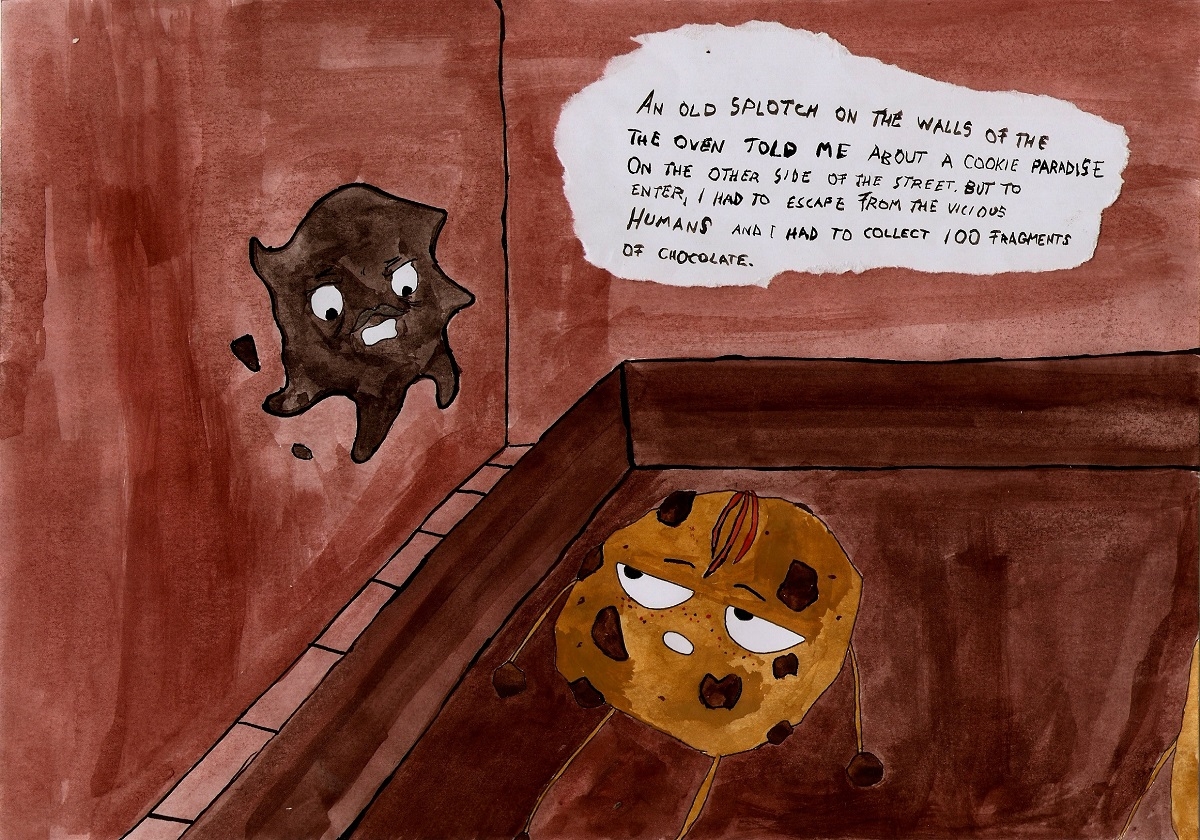 AN OLD SPLOTCH ON THE WALLS OF THE
THE OVEN TOLD ME ABOUT A COOKIE PARADISE
ON THE OTHER SIDE OF THE STREET. BUT TO
ENTER, I HAD TO ESCAPE FROM THE VICIOUS
HUMANS AND I HAD TO COLLECT 100 FRAGMENTS
OF CHOCOLATE.